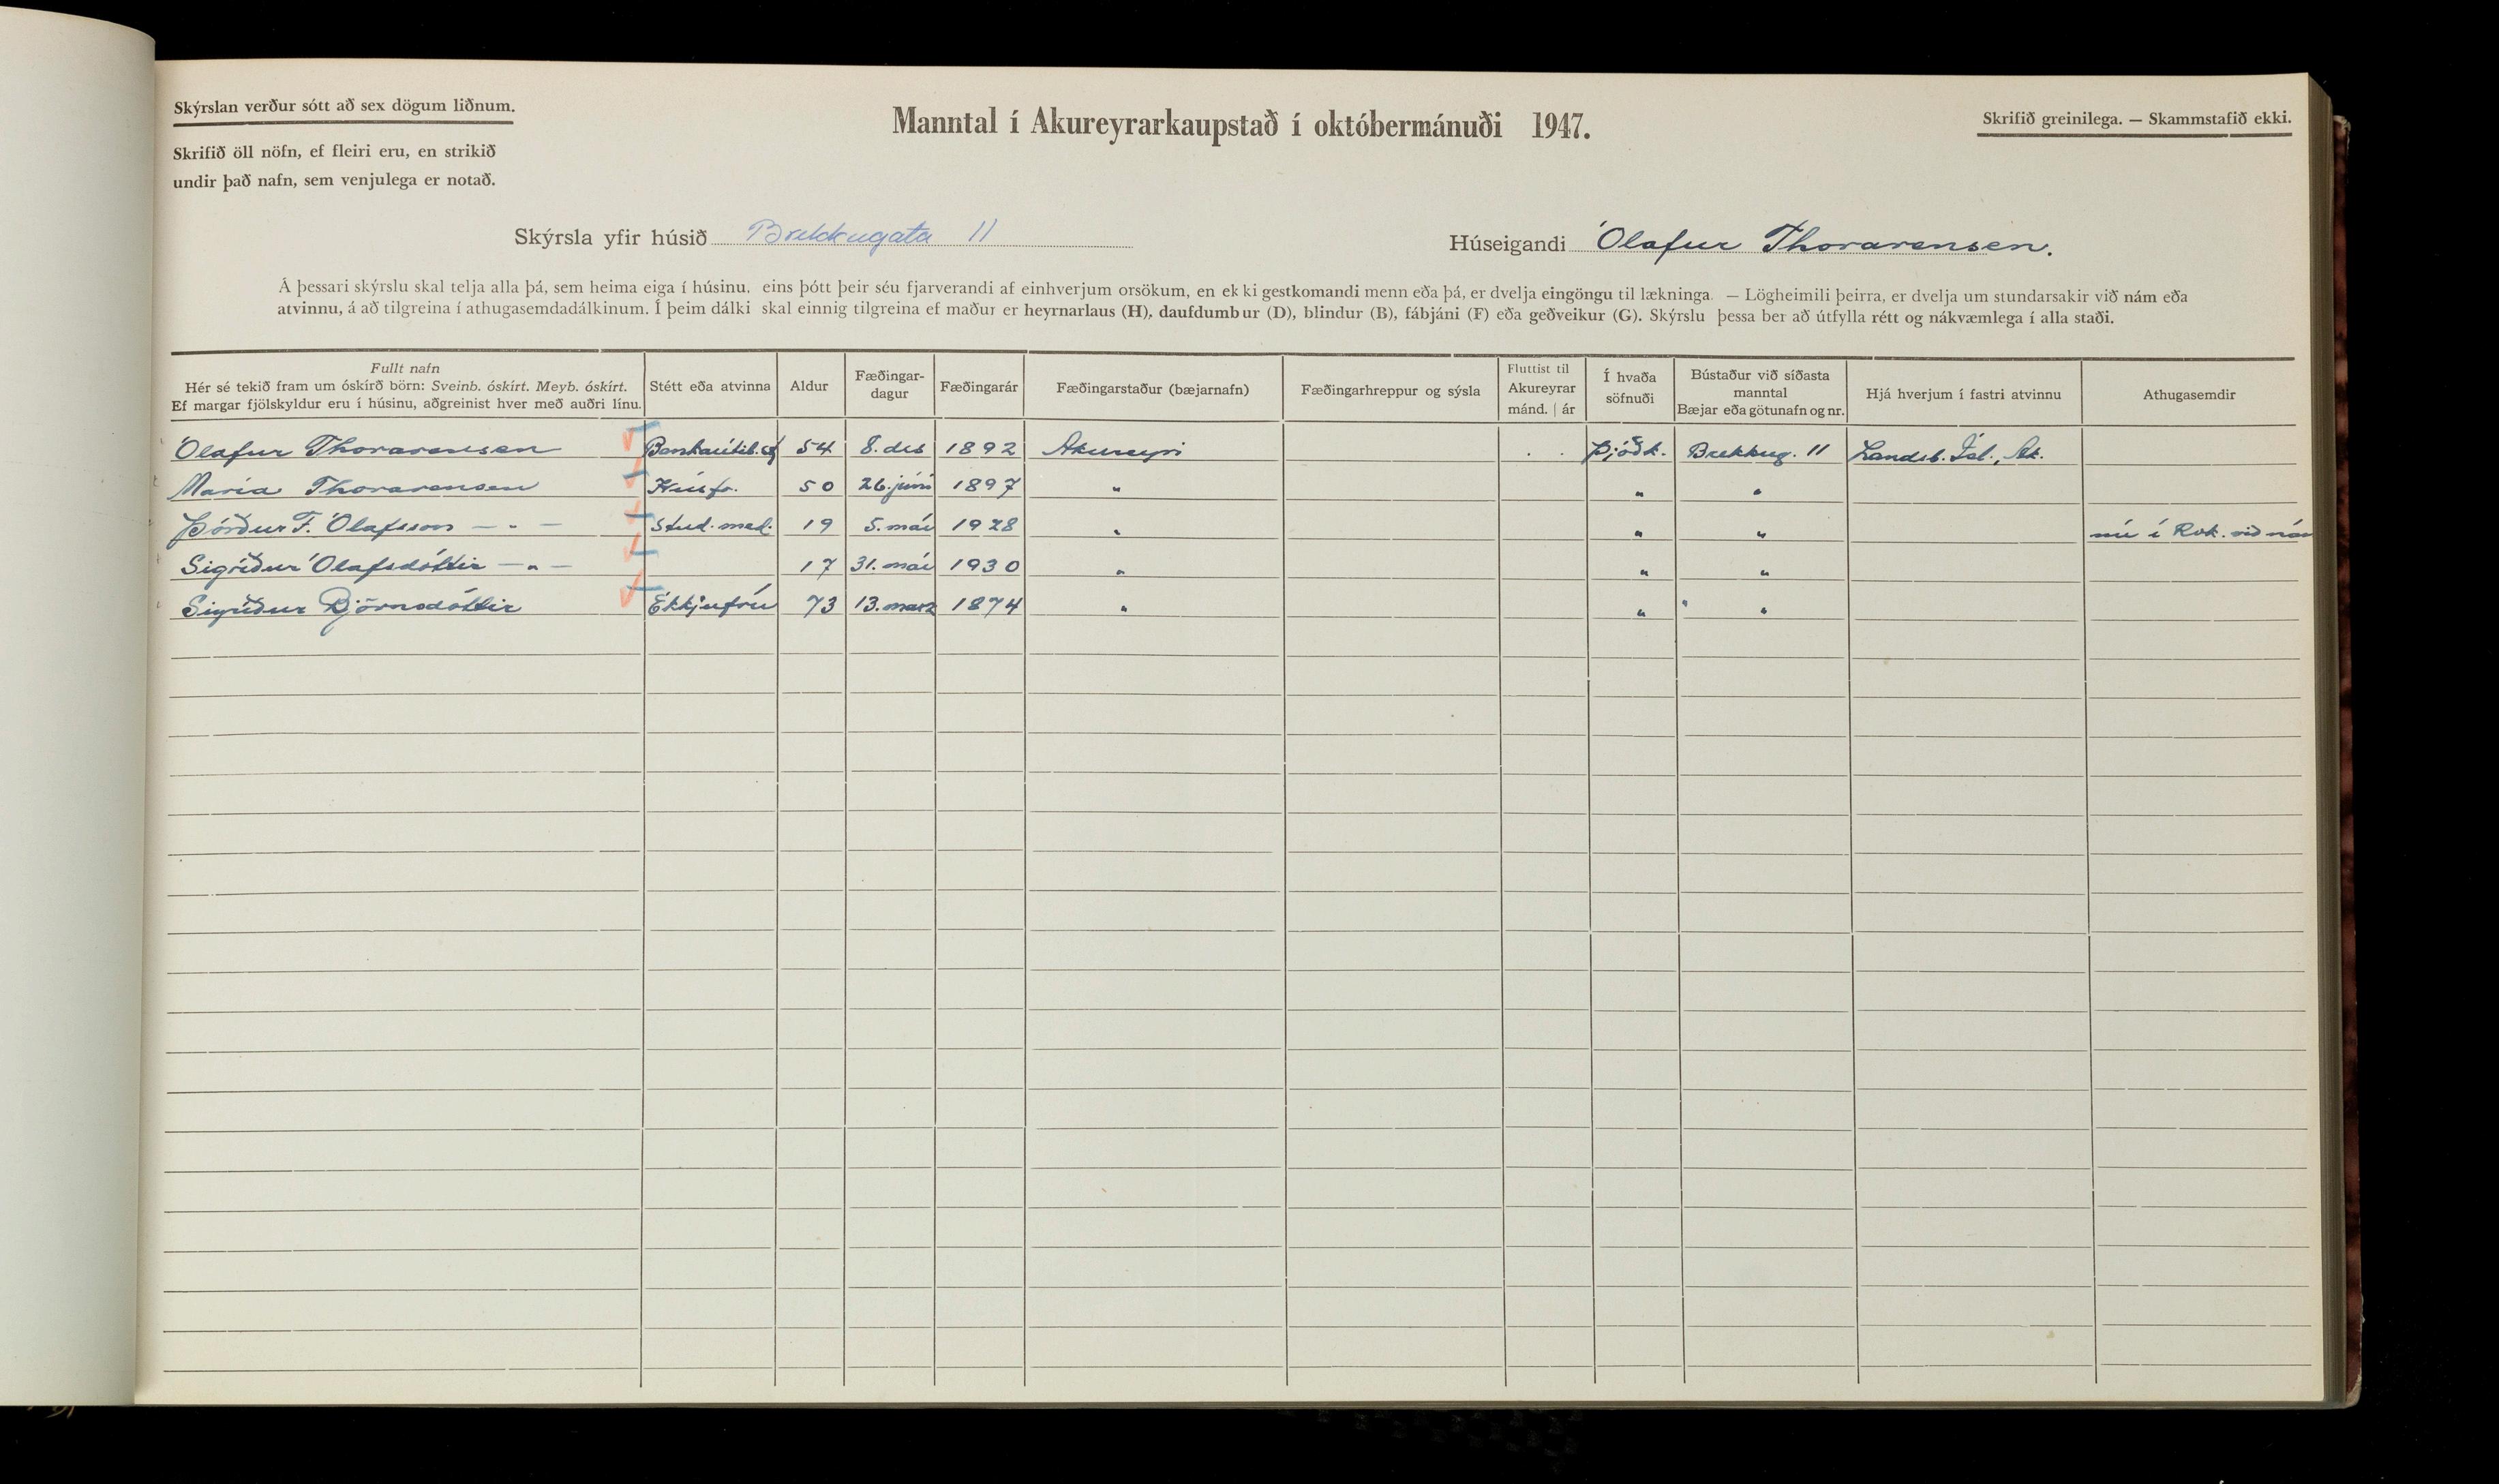 Skýrslan verður sótt að sex dögum liðnum.
Skrifið öll nöfn, ef fleiri eru, en strikið
undir það nafn, sem venjulega er notað.
Manntal í Akureyrarkaupstað í októbermánuði 1947.
Skrifið greinilega. — Skammstafið ekki.
Skýrsla yfir húsið Brekkugata 11
Húseigandi Ólafur Thorarensen.
Á þessari skýrslu skal telja alla þá, sem heima eiga í húsinu, eins þótt þeir séu fjarverandi af einhverjum orsökum, en ekki gestkomandi menn eða þá, er dvelja eingöngu til lækninga. — Lögheimili þeirra, er dvelja um stundarsakir við nám eða
atvinnu, á að tilgreina í athugasemdadálkinum. Í þeim dálki skal einnig tilgreina ef maður er heyrnarlaus (H), daufdumbur (D), blindur (B), fábjáni (F) eða geðveikur (G). Skýrslu þessa ber að útfylla rétt og nákvæmlega í alla staði.
Fullt nafn
Hér sé tekið fram um óskírð börn: Sveinb. óskírt. Meyb. óskírt.
Ef margar fjölskyldur eru í húsinu, aðgreinist hver með auðri línu.
Stétt eða atvinna
Aldur
Fæðingar-
dagur
Fæðingarár
Fæðingarstaður (bæjarnafn)
Fæðingarhreppur og sýsla
Fluttist til
Akureyrar
mánd. | ár
Í hvaða
söfnuði
Bústaður við síðasta
manntal
Bæjar eða götunafn og nr.
Hjá hverjum í fastri atvinnu
Athugasemdir
Ólafur Thorarensen Bankaútib.stj 54 8. des 1892 Akureyri Þjóðk. Brekkug. 11 Landsb. Ísl., Ak.
María Thorarensen Húsfr. 50 26. júní 1897 " " "
Þórður F. Ólafsson — " — Stud. med. 19 5. maí 1928 " " " nú í Rvk. við nám
Sigríður Ólafsdóttir — " — 17 31. maí 1930 " " "
Sigríður Björnsdóttir Ekkjufrú 73 13. marz 1874 " " "